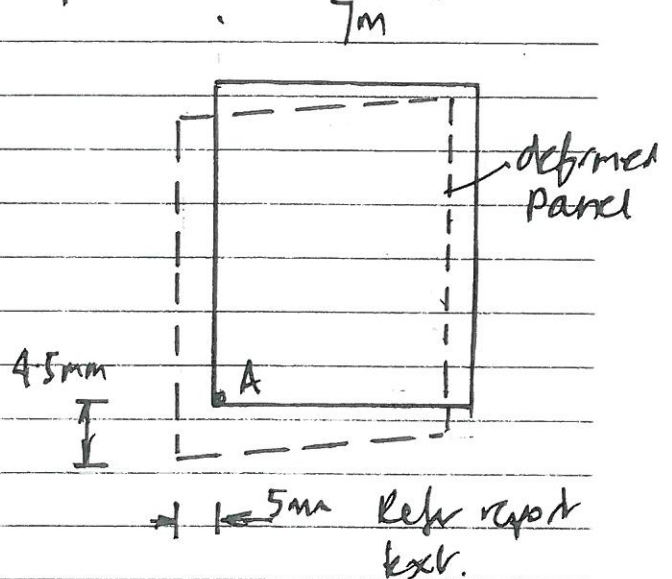 7m
deformed
Panel
4.5mm
A
5mm
Refer report
text.